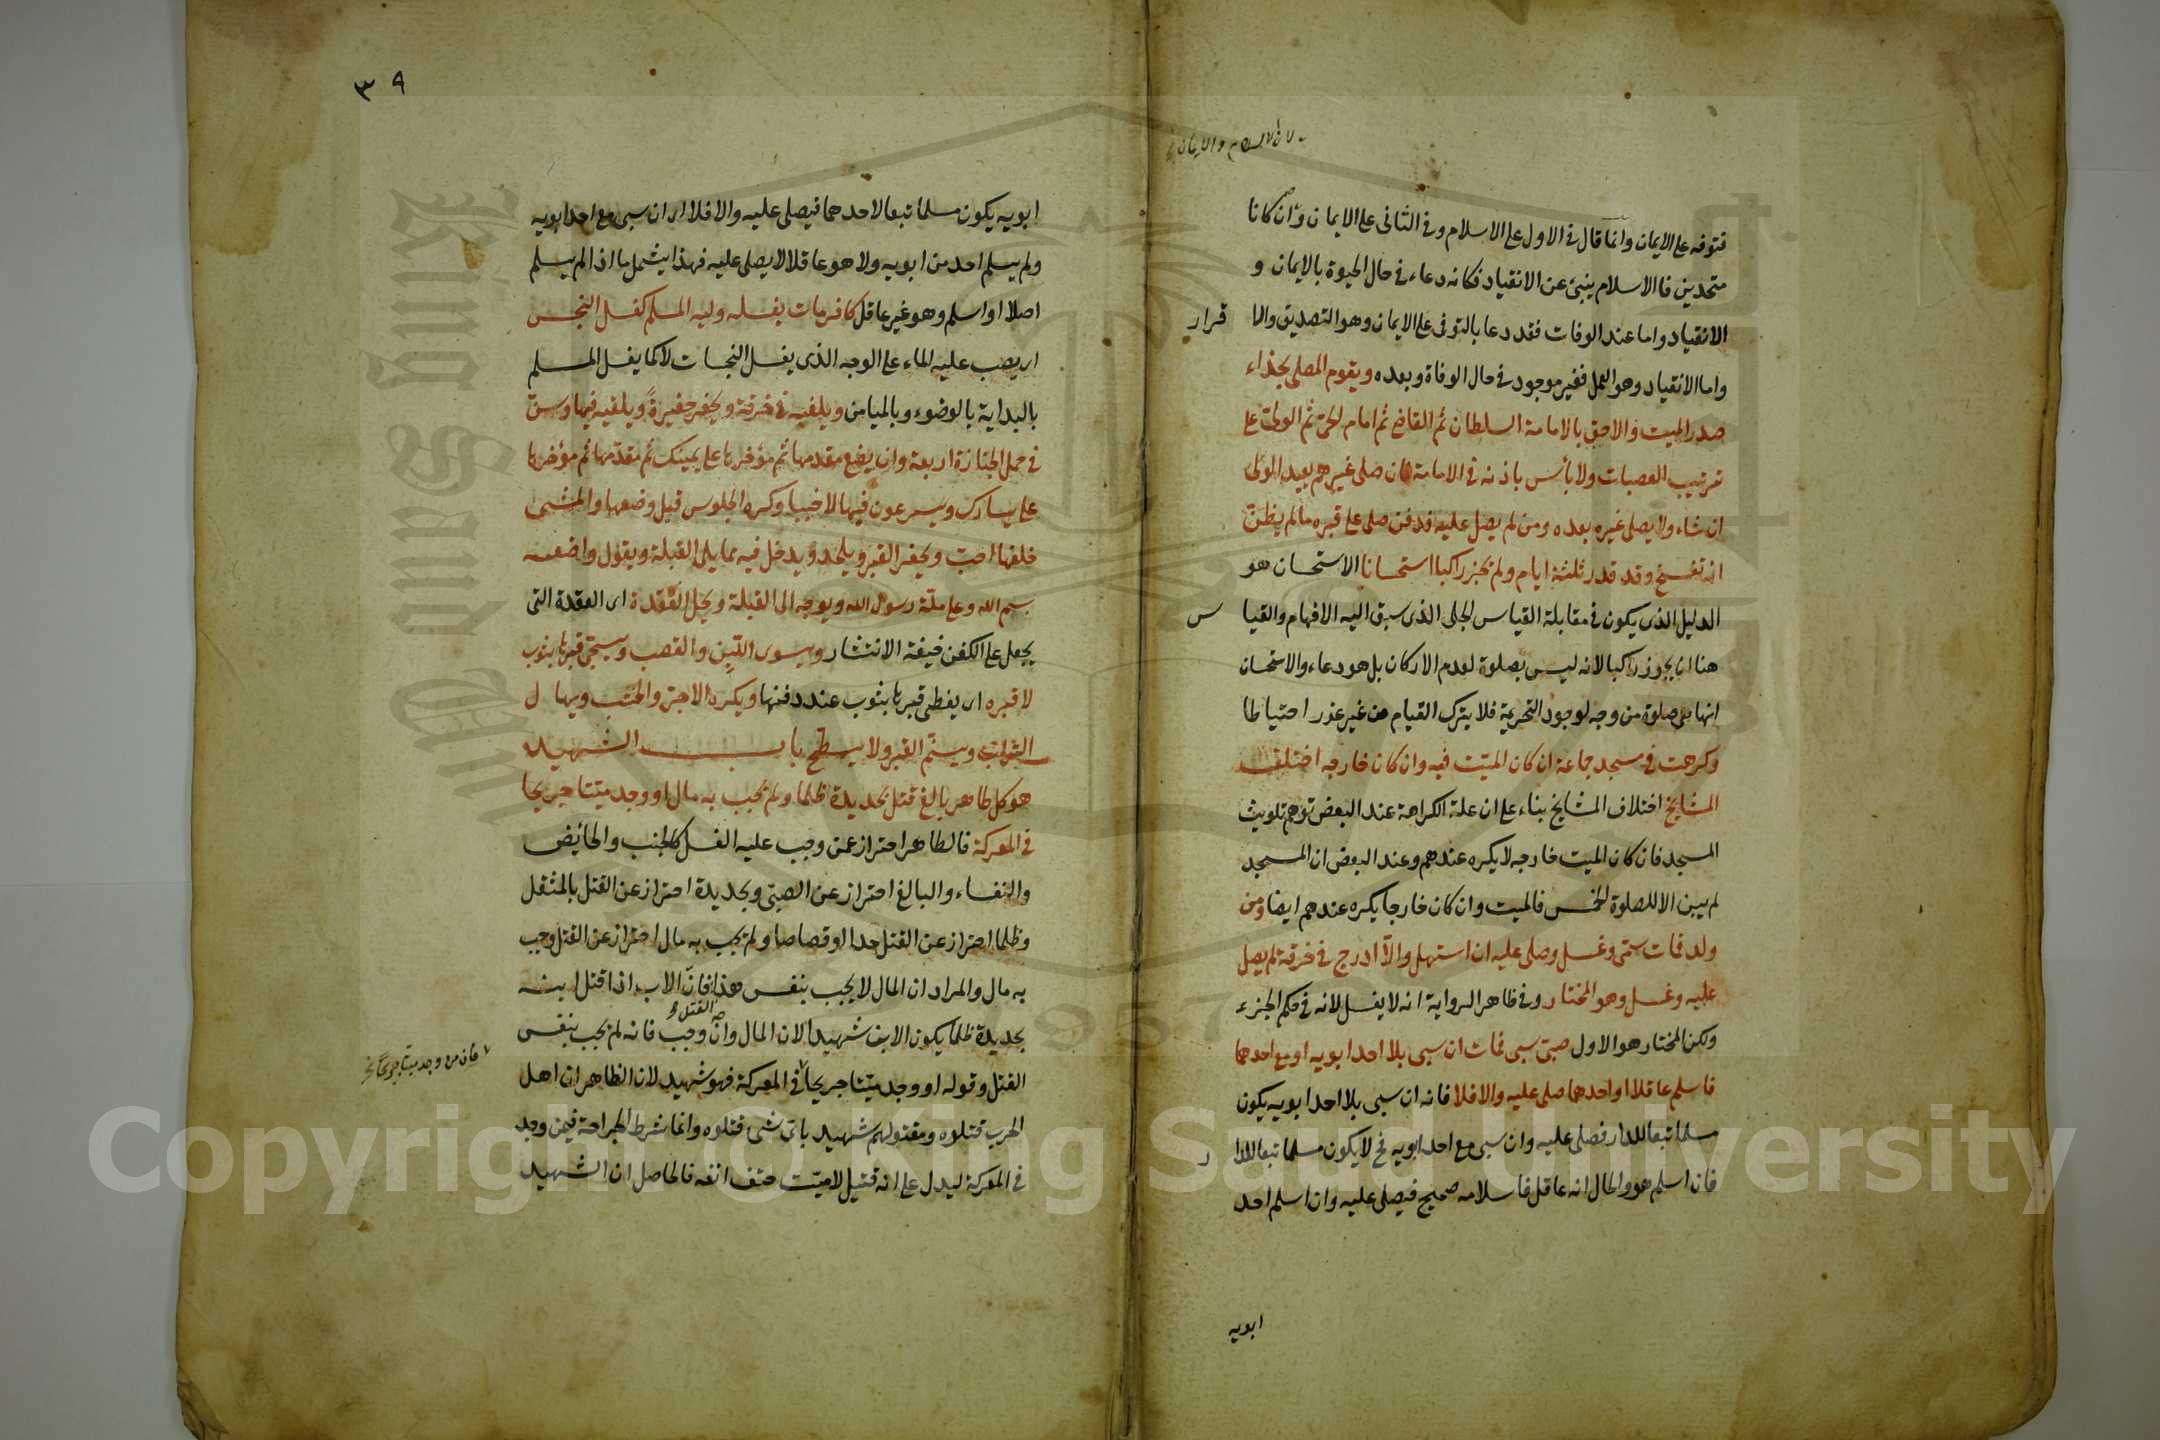 لان الاسلام والايمان
فتوفه على الايمان وانما قال في الاول على الاسلام وفي الثاني على الايمان وان كانا
متحدين فالاسلام ينبئ عن الانقياد فكانه دعاء في حال الحيوة بالايمان و
الانقياد واما عند الوفات فقد دعا بالتوفى على الايمان وهو التصديق والا قرار
واما الانقياد وهو العمل فغير موجود في حال الوفاة وبعده ويقوم المصلى بحذاء
صدر الميت والاحق بالامامة السلطان ثم القاضي ثم امام الحي ثم الولي على
ترتيب العصبات ولا بأس باذنه في الامامة فان صلى غيرهم يعيد الولى
ان شاء ولا يصلى غيره بعده ومن لم يصل عليه فدفن صلى على قبره ما لم يظن
انه تفسخ وقد قدر ثلثة ايام ولم تجز راكبا استحسانا الاستحسان هو
الدليل الذي يكون في مقابلة القياس الجلى الذى سبق اليه الافهام والقيا س
هنا ان يجوز راكبا لانه ليس بصلوة لعدم الاركان بل هو دعاء والاستحسان
انها صلوة من وجه لوجود التحريمة فلا يترك القيام من غير عذر احتياطا
وكرهت في مسجد جماعة ان كان الميت فيه وان كان خارجه اختلف
المشايخ اختلاف المشايخ بناء على ان علة الكراهة عند البعض توهم تلويث
المسجد فان كان الميت خارجه لا يكره عندهم وعند البعض ان المسجد
لم يبن الا للصلوة الخمس فالميت وان كان خارجا يكره عندهم ايضا ومن
ولد فمات سمى وغسل وصلى عليه ان استهل والا ادرج في خرقة لم يصل
عليه وغسل وهو المختار وفي ظاهر الرواية انه لا يغسل لانه في حكم الجزء
ولكن المختار هو الاول صبى سبى فمات ان سبى بلا احد ابويه او مع احدهما
فاسلم عاقلا او احدهما صلى عليه والا فلا فانه ان سبى بلا احد ابويه يكون
مسلما تبعا للدار فصلى عليه وان سبى مع احد ابويه فح لا يكون مسلما تبعا للدا ر
فان اسلم هو والحال انه عاقل فاسلامه صحيح فيصلى عليه وان اسلم احد
ابويه
٣٩
ابويه يكون مسلما تبعا لاحدهما فيصلى عليه والا فلا اى ان سبى مع احد ابويه
ولم يسلم احد من ابويه ولا هو عاقلا لا يصلى عليه فهذا يشمل ما اذا لم يسلم
اصلا او اسلم وهو غير عاقل كافر مات يغسله وليه المسلم كغسل النجس
اى يصب عليه الماء على الوجه الذى يغسل النجاسات لا كما يغسل المسلم
بالبداية بالوضوء وبالميامن ويلفيه في خرقة ويحفر حفيرة ويلقيه فيها وسن
في حمل الجنازة اربعة وان يضع مقدمها ثم مؤخرها على يمينك ثم مقدمها ثم مؤخرها
على يسارك ويسرعون فيها لا خببا وكره الجلوس قبل وضعها والمشى
خلفها احب ويحفر القبر ويلحد ويدخل فيه مما يلى القبلة ويقول واضعه
بسم الله وعلى ملة رسول الله ويوجه الى القبلة ويحل العقدة اى العقدة التى
يجعل على الكفن خيفة الانتشار ويسوى اللبن والقصب ويسجى قبرها بثوب
لا قبره اى يغطى قبرها بثوب عند دفنها ويكره الاجر والخشب ويهال
التراب ويسنم القبر ولا يسطح باب الشهيد
هو كل طاهر بالغ قتل بحديدة ظلما ولم يجب به مال او وجد ميتا جريحا
في المعركة فالطاهر احتراز عن وجب عليه الغسل كالجنب والحائض
والنفساء والبالغ احتراز عن الصبى وبحديدة احتراز عن القتل بالمثقل
وظلما احتراز عن القتل حدا او قصاصا ولم يجب به مال احتراز عن القتل وجب
به مال والمراد ان المال لا يجب بنفس هذا القتل فان الاب اذا قتل ابنه
بحديدة ظلما يكون الابن شهيدا لان المال وان وجب فانه لم يجب بنفس
القتل وقوله او وجد ميتا جريحا في المعركة فهو شهيد لان الظاهر ان اهل
فان من وجد ميتا جريحا
الحرب قتلوه ومقتولهم شهيد باى شئ قتلوه وانما شرط الجراحة فيمن وجد
في المعركة ليدل على انه قتيل لا ميت حتف انفه فالحاصل ان الشهيد
Copyright © King Saud University